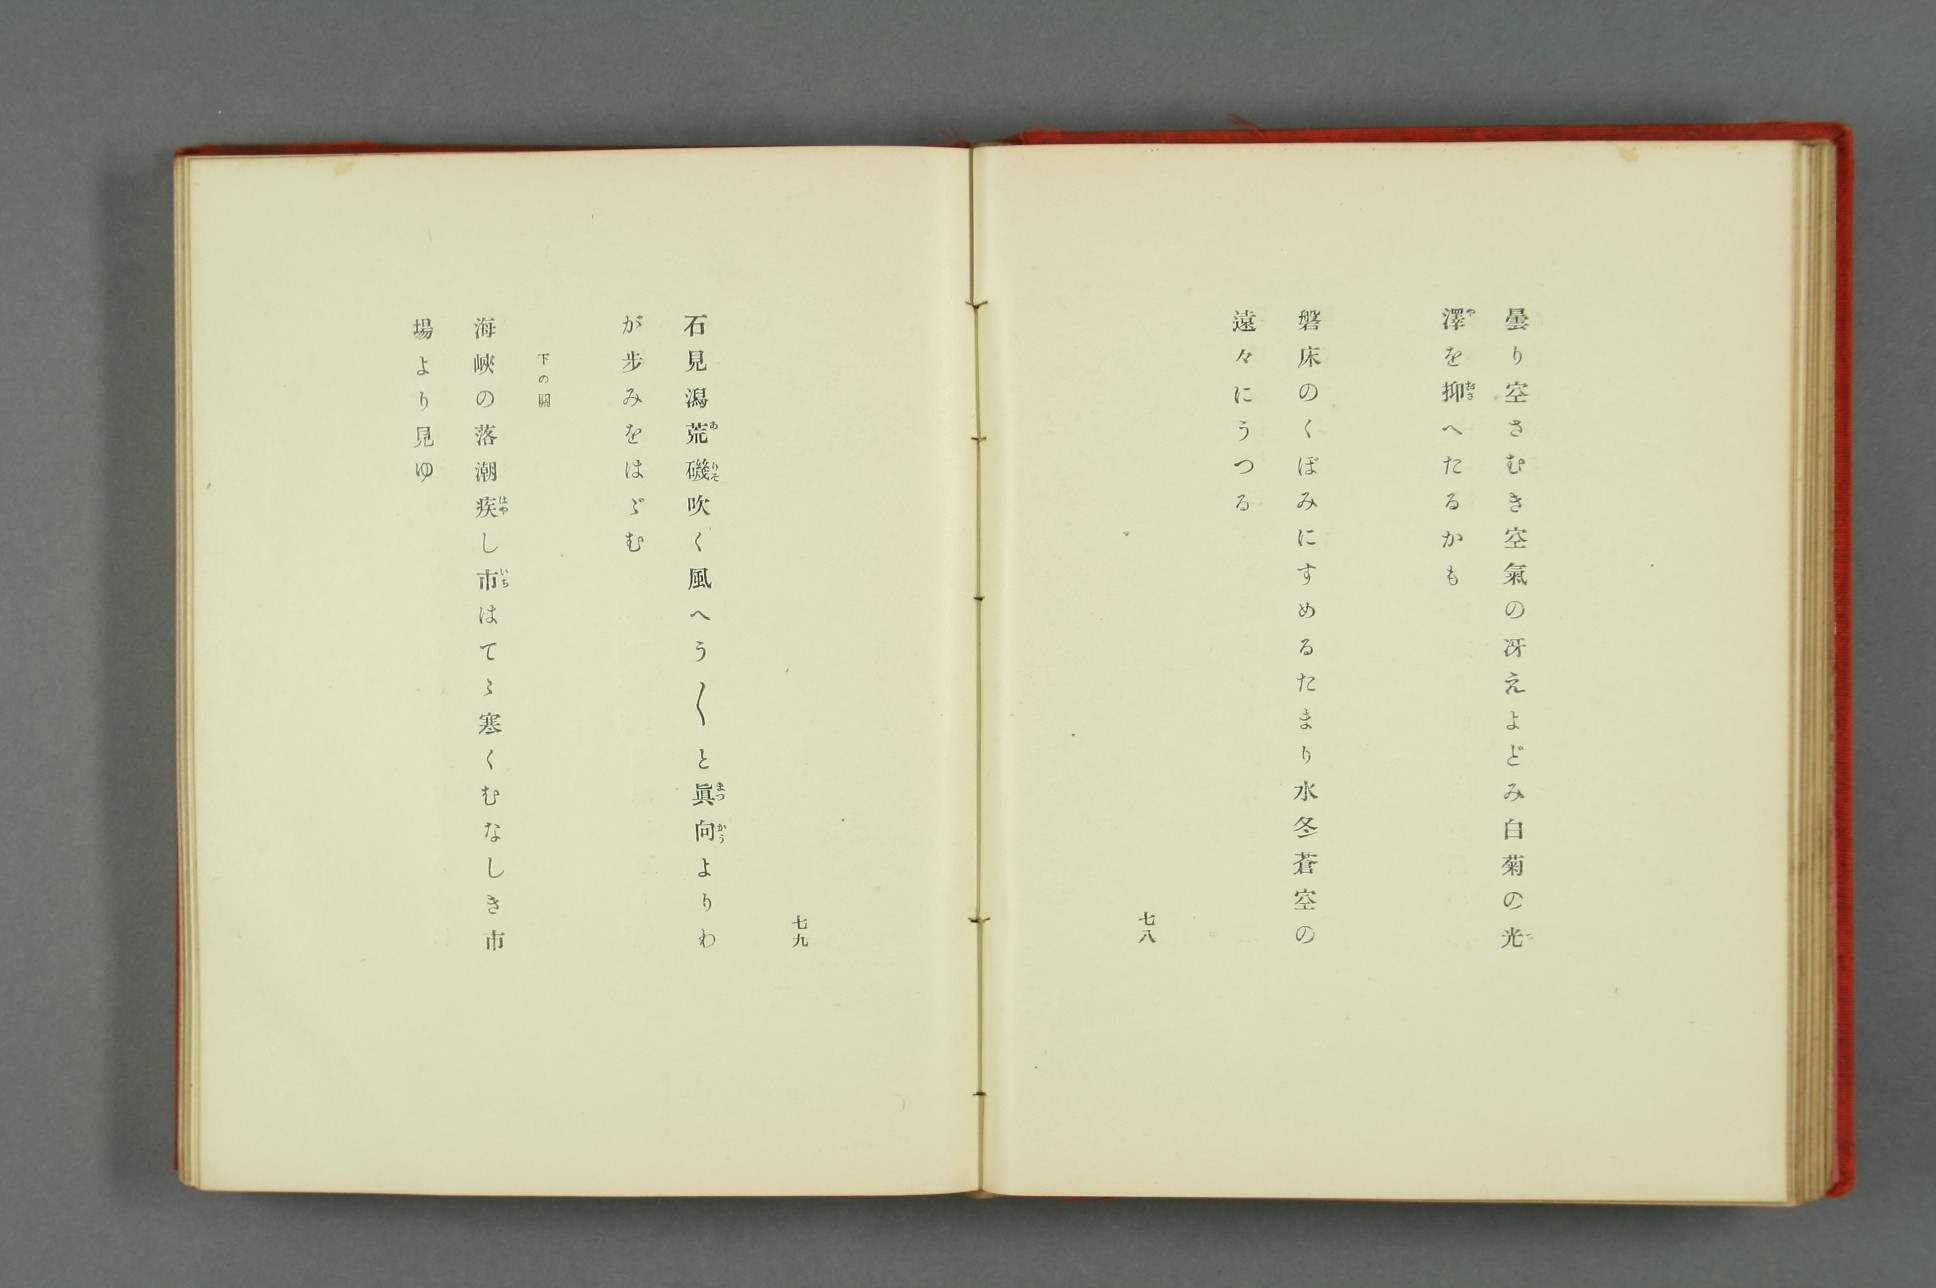 曇り空さむき空氣の冴えよどみ白菊の光
澤を抑へたるかも
磐床のくぼみにすめるたまり水冬蒼空の
遠々にうつる
七八
七九
石見潟荒磯吹く風へう〳〵と眞向よりわ
が歩みをはゞむ
下の關
海峽の落潮疾し市はてゝ寒くむなしき市
場より見ゆ